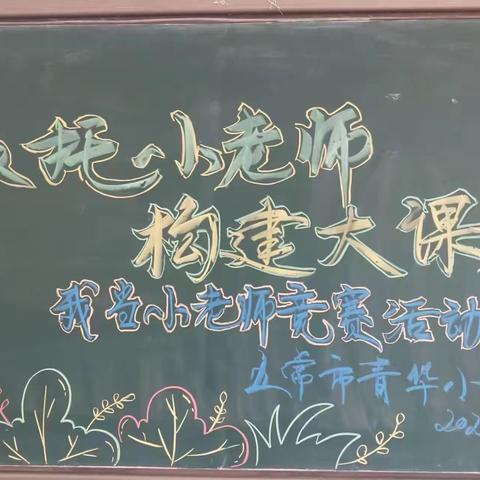 托小老师
构建大课
我当小老师竞赛活动
五常市青华小
202